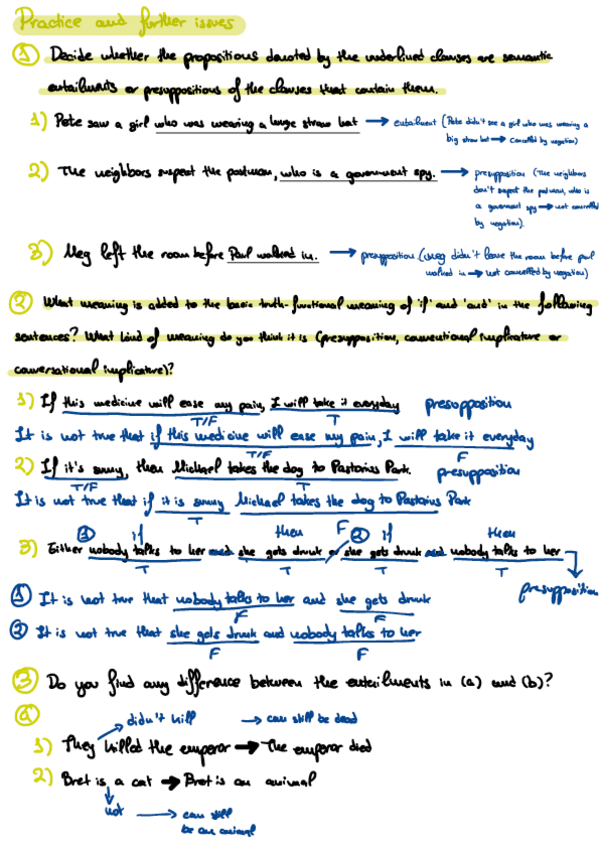 Practice and further issues
① Decide whether the propositions denoted by the underlined clauses are semantic
entailments or presuppositions of the clauses that contain them.
1) Pete saw a girl who was wearing a huge straw hat → entailment (Pete didn't see a girl who was wearing a
big straw hat → cancelled by negation)
2) The neighbors suspect the postman, who is a government spy. → presupposition (The neighbors
don't suspect the postman, who is
a government spy → not cancelled
by negation).
3) Meg left the room before Paul walked in. → presupposition (Meg didn't leave the room before Paul
walked in → not cancelled by negation)
② What meaning is added to the basic truth-functional meaning of 'if' and 'and' in the following
sentences? What kind of meaning do you think it is (presupposition, conventional implicature or
conversational implicature)?
1) If this medicine will ease my pain, I will take it everyday presupposition
T/F T
It is not true that if this medicine will ease my pain, I will take it everyday
T/F F
2) If it's sunny, then Michael takes the dog to Pastorius Park. presupposition
T/F T
It is not true that if it is sunny Michael takes the dog to Pastorius Park
T F
① if then ② if then
3) Either nobody talks to her and she gets drunk or she gets drunk and nobody talks to her
T T T T presupposition
① It is not true that nobody talks to her and she gets drunk
F F
② It is not true that she gets drunk and nobody talks to her
F F
③ Do you find any difference between the entailments in (a) and (b)?
ⓐ didn't kill → can still be dead
1) They killed the emperor → The emperor died
2) Bret is a cat → Bret is an animal
not → can still
be an animal